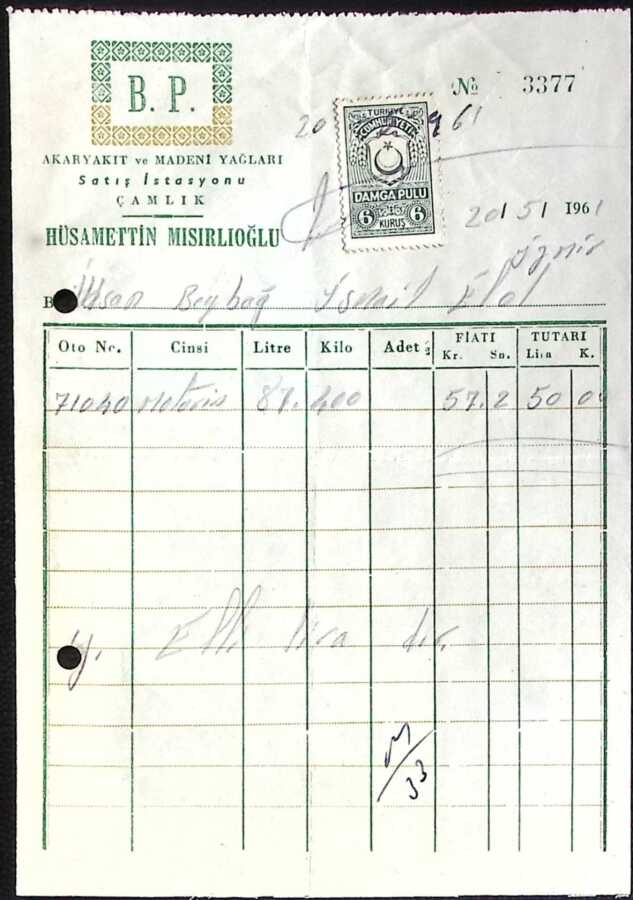 B. P.
№ 3377
AKARYAKIT ve MADENİ YAĞLARI
Satış İstasyonu
ÇAMLIK
HÜSAMETTİN MISIRLIOĞLU
TÜRKİYE
CUMHURİYETİ
DAMGA PULU
6 KURUŞ 6
20 961
20/5/1961
İzmir
B İhsan Beybağ İsmail
Oto No. Cinsi Litre Kilo Adet FİATI TUTARI
Kr. Sn. Lira K.
71040 Motorin 87.400 57.2 50 00
Elli lira dır.
33